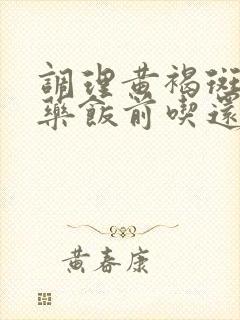 調理黃褐斑
藥飯前喫還
黃春康